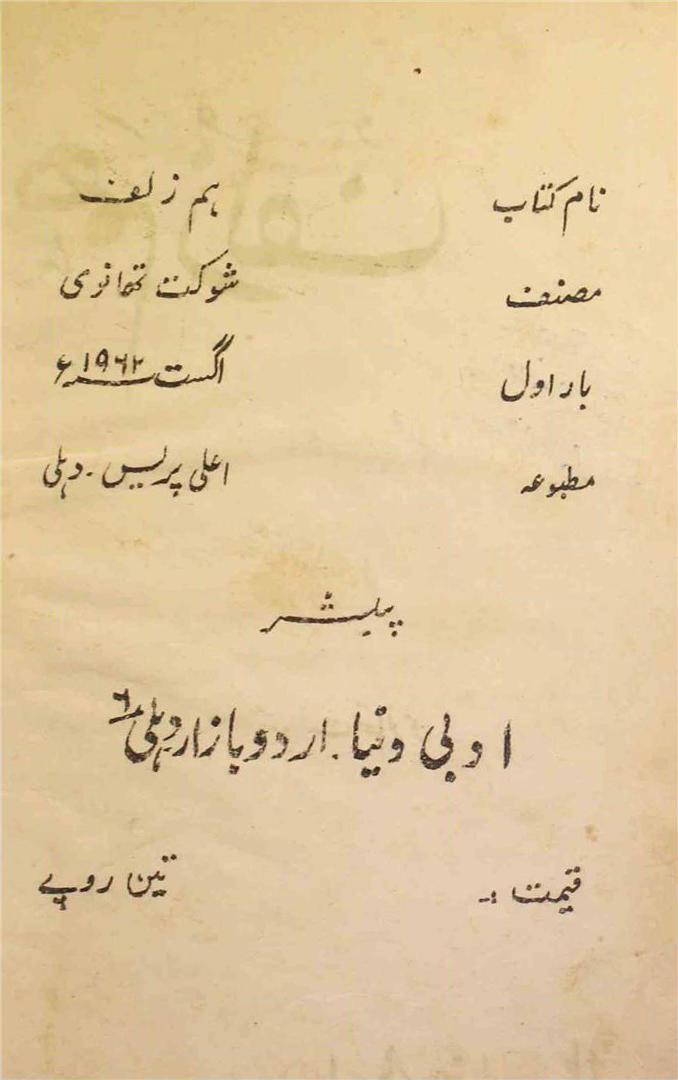 نام کتاب ہم زلف
مصنف شوکت تھانوی
بار اول اگست ۱۹۶۲ء
مطبوعہ اعلی پریس۔ دہلی
پبلیشر
ادبی دنیا۔ اردو بازار دہلی ۶
قیمت :۔ تین روپے